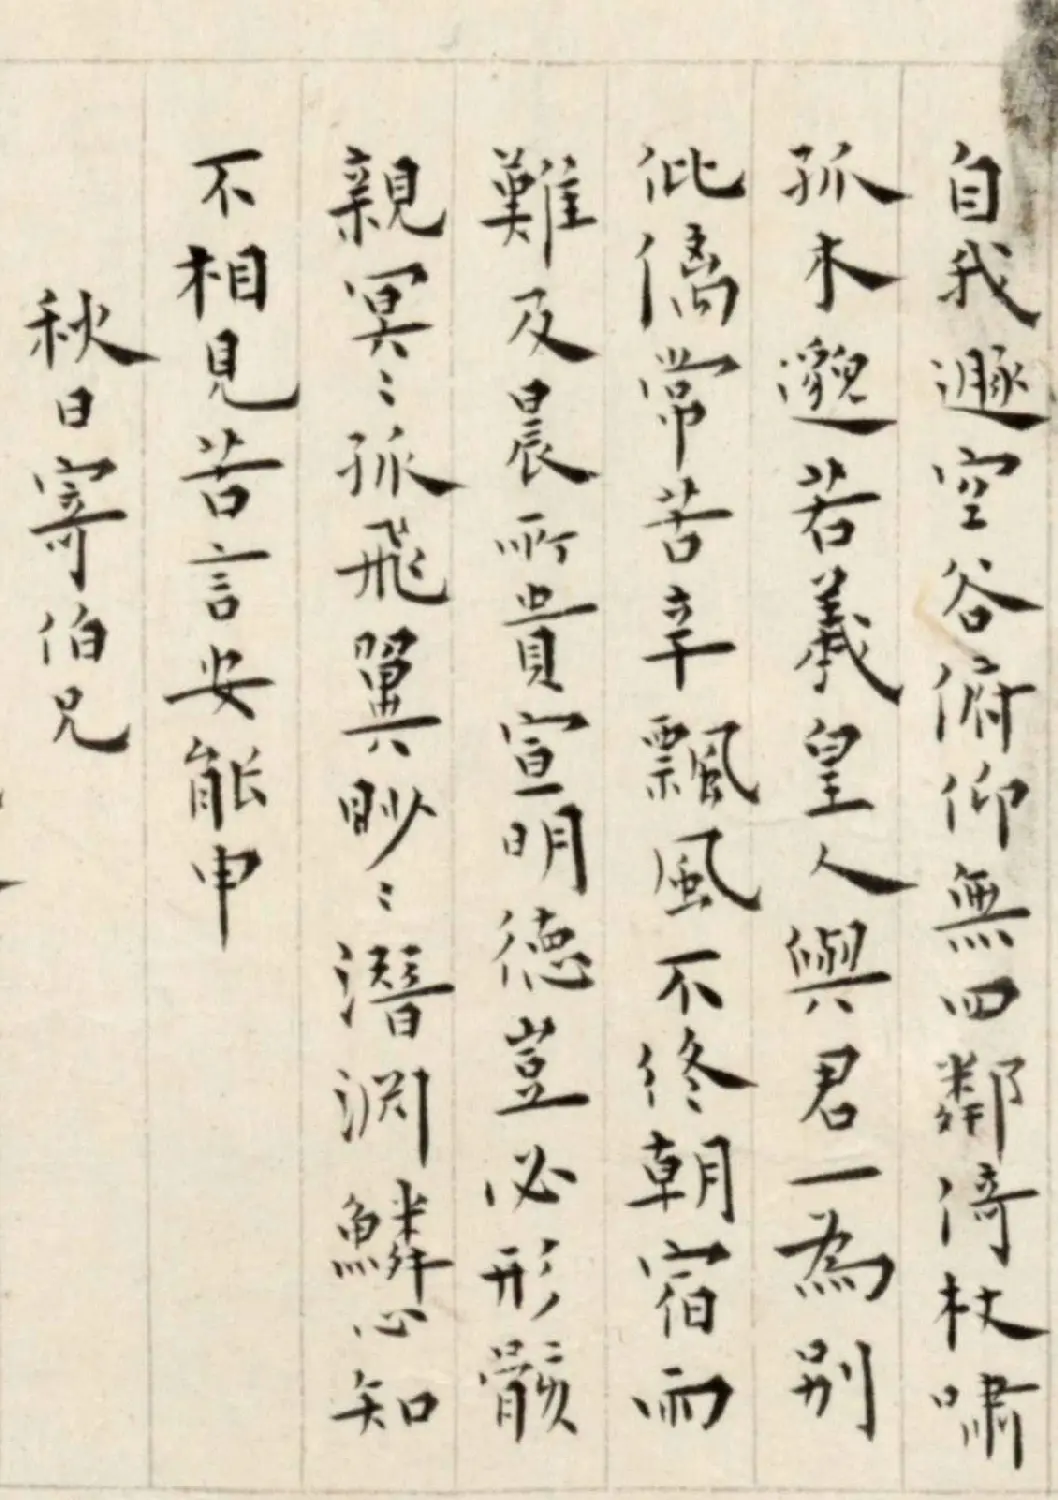 自我遯空谷俯仰無四鄰倚杖嘯
孤木邈若羲皇人與君一為別
仳僑常苦辛飄風不終朝宿雨
難及晨所貴宣明德豈必形骸
親冥〻孤飛翼眇〻潛淵鱗心知
不相見苦言安能申
秋日寄伯兄